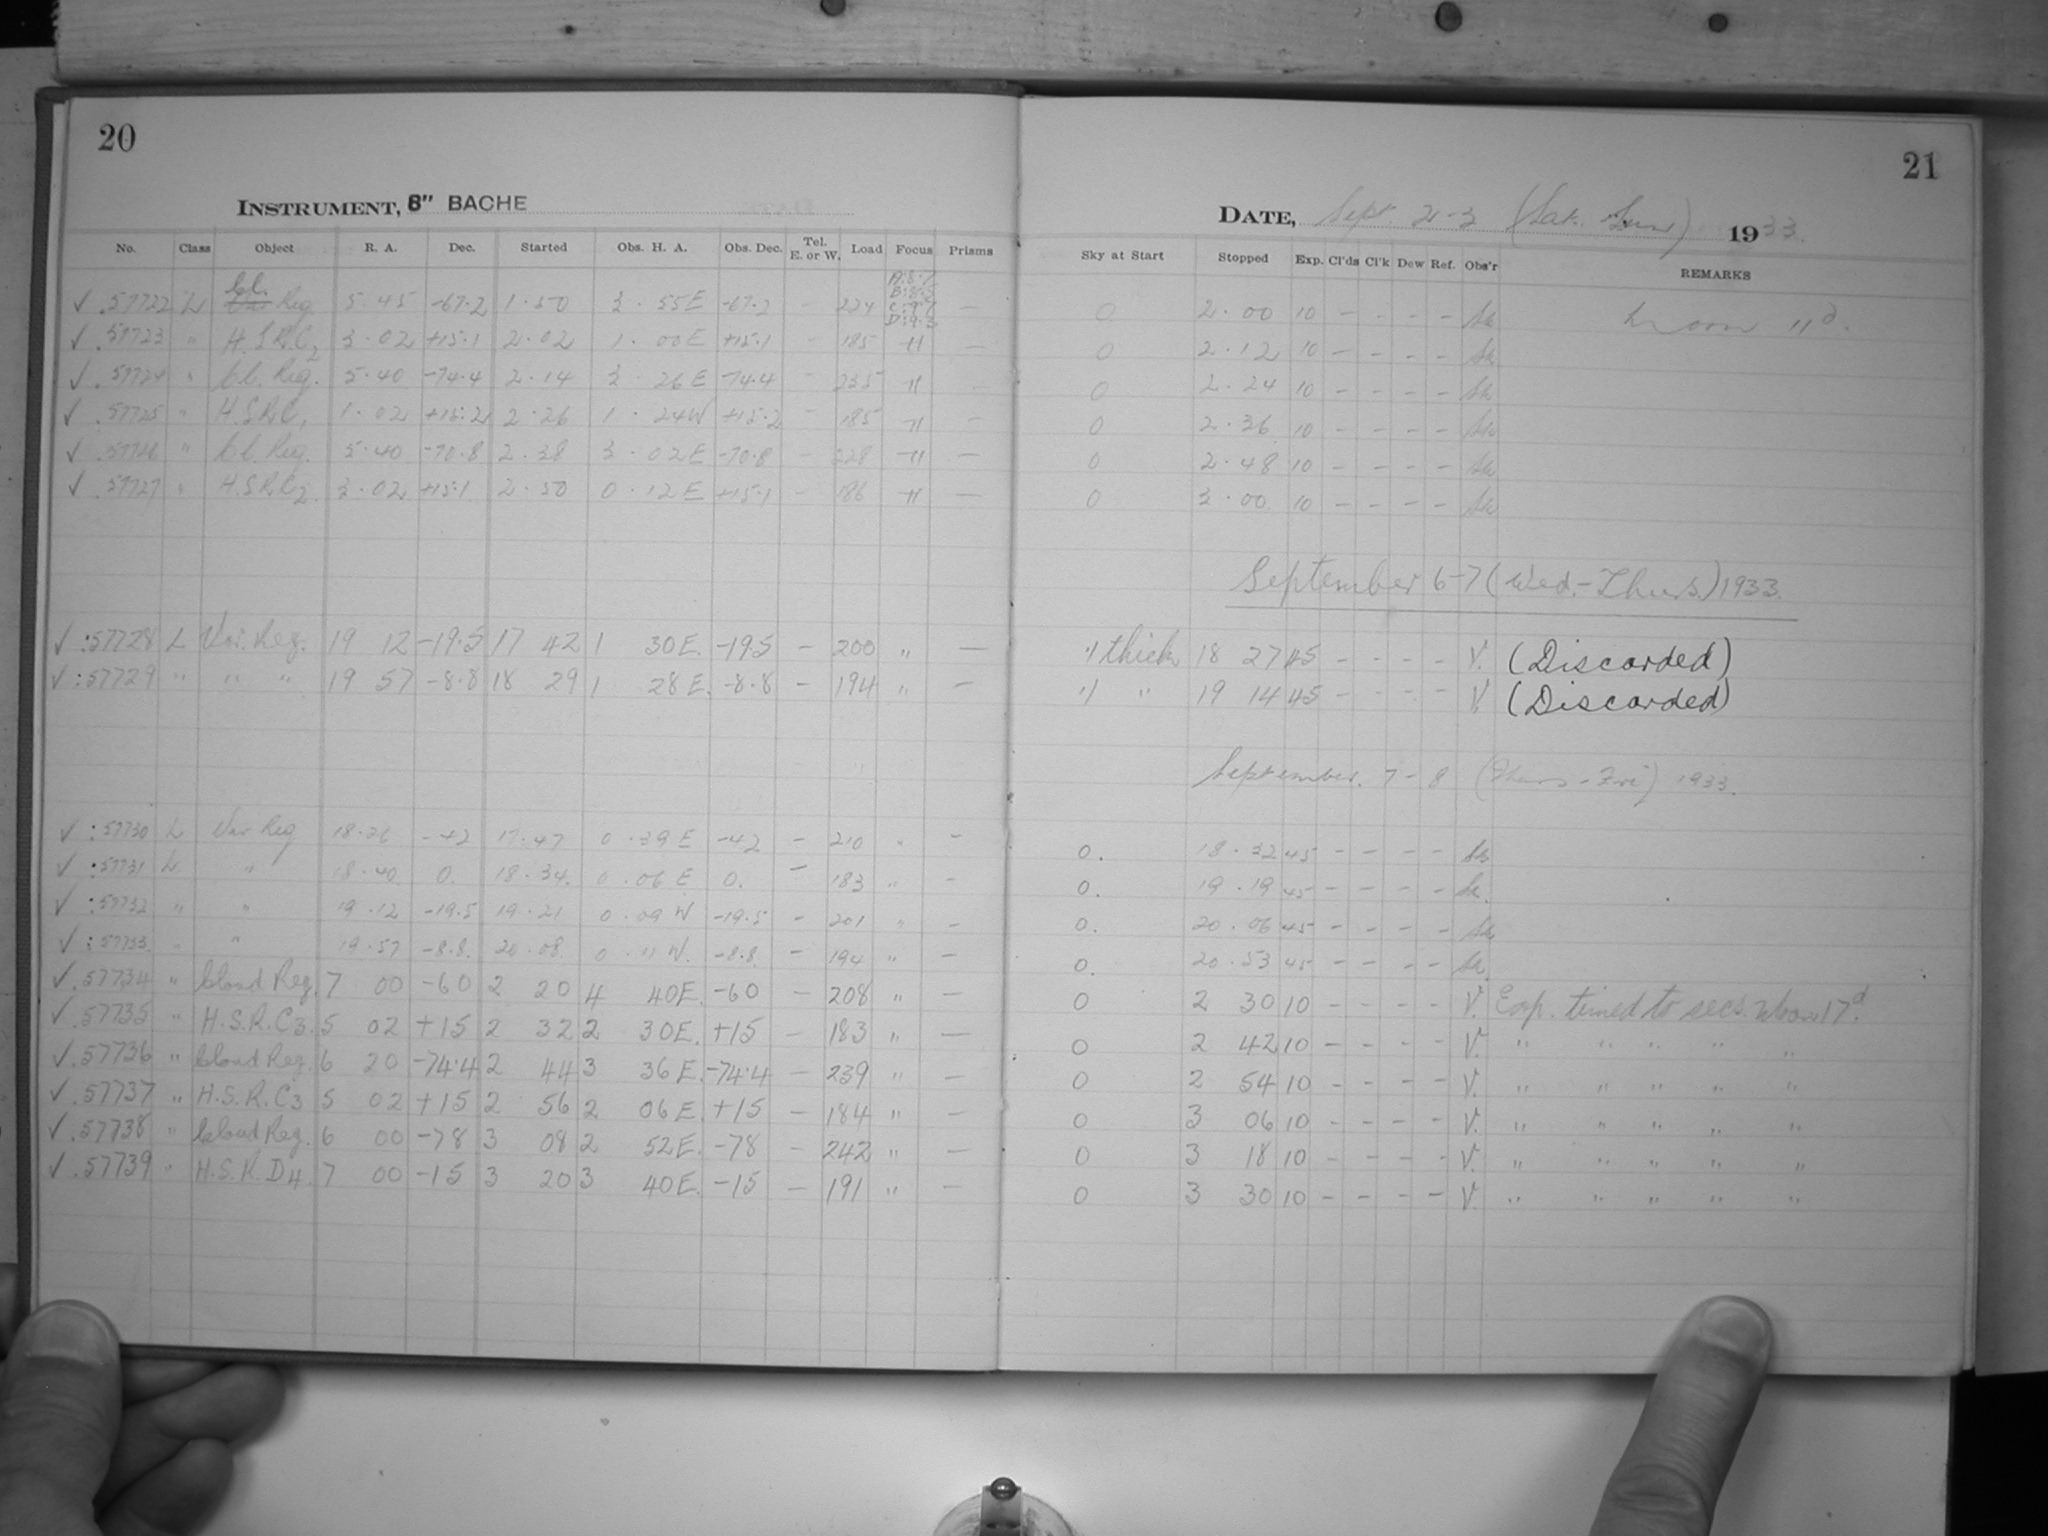 20
INSTRUMENT, 8" BACHE
No. Class Object R. A. Dec. Started Obs. H. A. Obs. Dec. Tel. E. or W. Load Focus Prisms
Cl.
✓ .57722 L Var Reg. 5.45 -67.2 1.50 3.55E -67.2 - 224 A:8.7 B:8.3 C:9.2 D:9.3 —
✓ .57723 " H.S.R.C2 3.02 +15.1 2.02 1.00E +15.1 - 185 " —
✓ .57724 " Cl. Reg. 5.40 -74.4 2.14 3.26E -74.4 - 235 " —
✓ .57725 " H.S.R.C1 1.02 +15.2 2.26 1.24W +15.2 - 185 " —
✓ .57726 " Cl. Reg. 5.40 -70.8 2.38 3.02E -70.8 - 228 " —
✓ .57727 " H.S.R.C2 3.02 +15.1 2.50 0.12E +15.1 - 186 " —
✓ :57728 L Var. Reg. 19 12 -19.5 17 42 1 30E. -19.5 - 200 " —
✓ :57729 " " " 19 57 -8.8 18 29 1 28E. -8.8 - 194 " —
✓ :57730 L Var Reg 18.26 -42 17.47 0.39E -42 - 210 " -
✓ :57731 L " 18.40 0. 18.34. 0.06E 0. - 183 " -
✓ :57732 " " 19.12 -19.5 19.21 0.09W -19.5 - 201 " -
✓ :57733. " " 19.57 -8.8. 20.08. 0.11W. -8.8. - 194 " -
✓ .57734 " Cloud Reg. 7 00 -60 2 20 4 40E. -60 - 208 " —
✓ .57735 " H.S.R.C3. 5 02 +15 2 32 2 30E. +15 - 183 " —
✓ .57736 " Cloud Reg. 6 20 -74.4 2 44 3 36E. -74.4 - 239 " —
✓ .57737 " H.S.R.C3 5 02 +15 2 56 2 06E. +15 - 184 " —
✓ .57738 " Cloud Reg. 6 00 -78 3 08 2 52E. -78 - 242 " —
✓ .57739 " H.S.R.D4. 7 00 -15 3 20 3 40E. -15 - 191 " —
21
DATE, Sept. 2-3 (Sat. Sun) 1933.
Sky at Start Stopped Exp. Cl'ds Cl'k Dew Ref. Obs'r REMARKS
0 2.00 10 - - - - Sk Moon 11d.
0 2.12 10 - - - - Sk
0 2.24 10 - - - - Sk
0 2.36 10 - - - - Sk
0 2.48 10 - - - - Sk
0 3.00 10 - - - - Sk
September 6-7 (Wed.-Thurs.) 1933.
thick 18 27 45 - - - - V. (Discarded)
" 19 14 45 - - - - V. (Discarded)
September. 7-8 (Thurs-Fri) 1933.
0. 18.32 45 - - - - Sk
0. 19.19 45 - - - - Sk.
0. 20.06 45 - - - - Sk
0. 20.53 45 - - - - Sk.
0 2 30 10 - - - - V. Exp. timed to secs. Moon 17d.
0 2 42 10 - - - - V. " " " " "
0 2 54 10 - - - - V. " " " " "
0 3 06 10 - - - - V. " " " " "
0 3 18 10 - - - - V. " " " " "
0 3 30 10 - - - - V. " " " " "